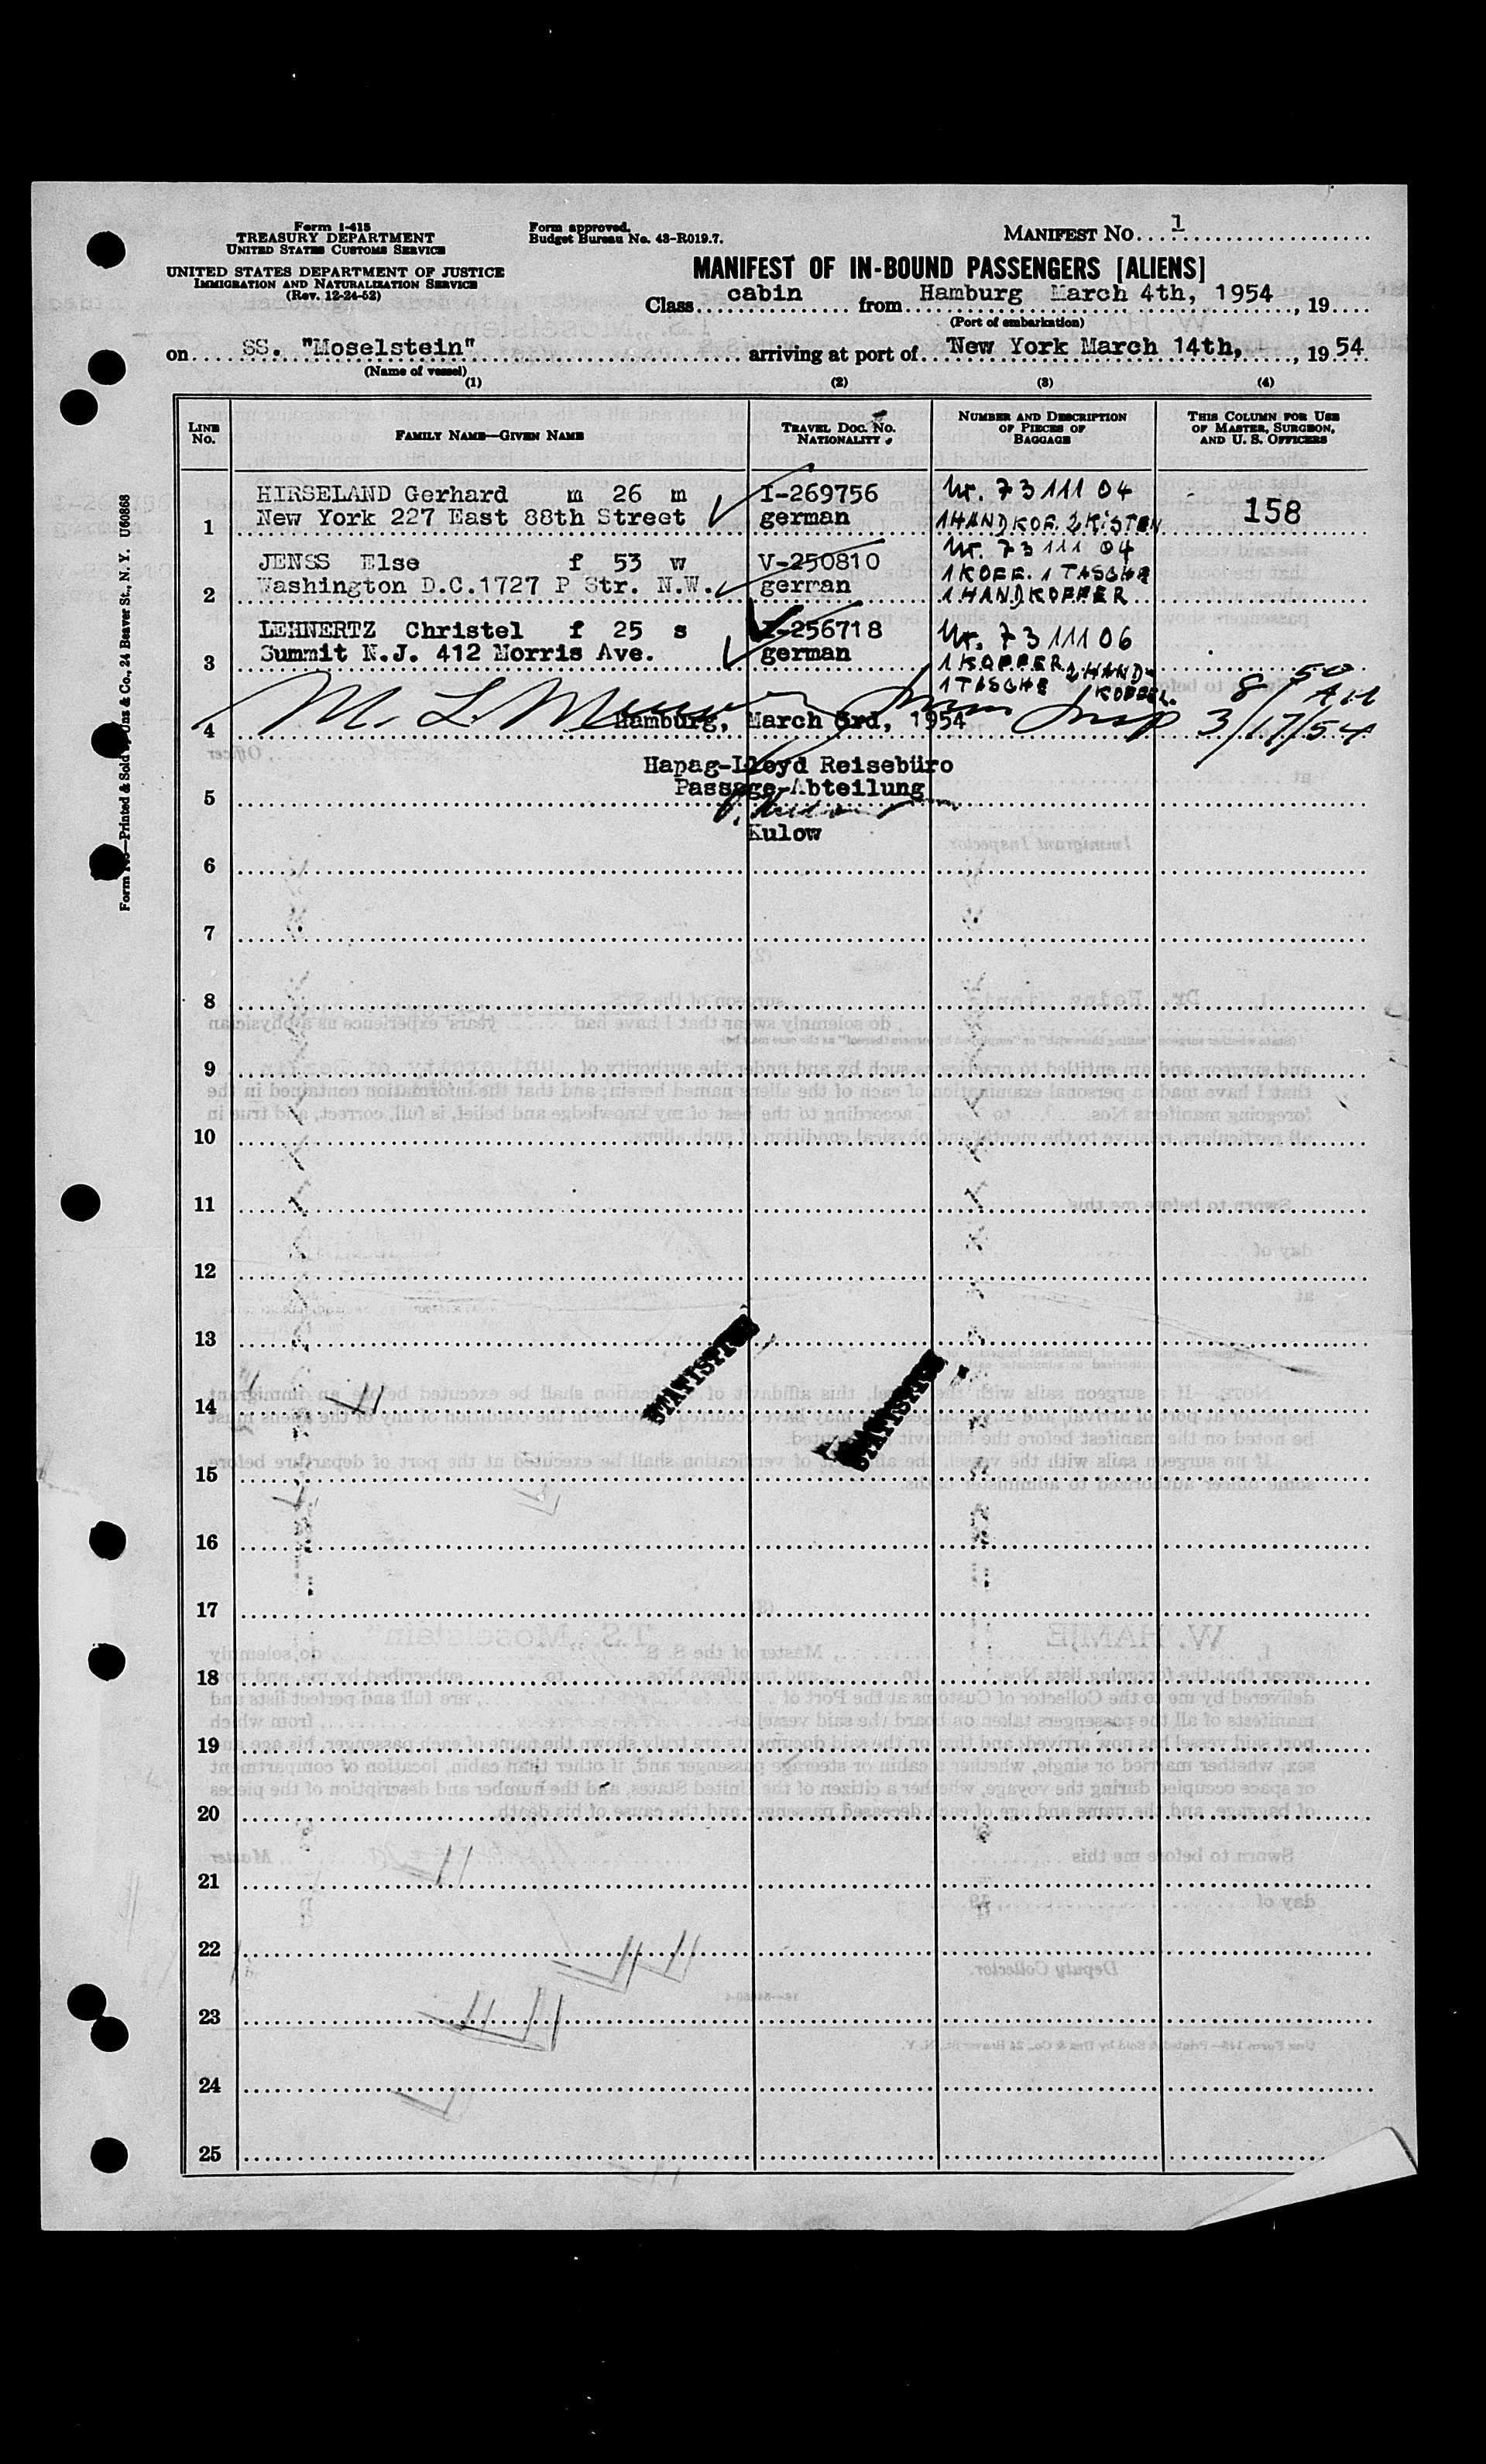 Form I-415
TREASURY DEPARTMENT
UNITED STATES CUSTOMS SERVICE
UNITED STATES DEPARTMENT OF JUSTICE
IMMIGRATION AND NATURALIZATION SERVICE
(Rev. 12-24-52)
Form approved.
Budget Bureau No. 43-R019.7.
MANIFEST NO. 1
MANIFEST OF IN-BOUND PASSENGERS [ALIENS]
Class cabin from Hamburg March 4th, 1954, 19
(Port of embarkation)
on SS. "Moselstein" arriving at port of New York March 14th, , 1954
(Name of vessel)
(1) (2) (3) (4)
LINE NO.
FAMILY NAME—GIVEN NAME
TRAVEL DOC. NO. NATIONALITY
NUMBER AND DESCRIPTION OF PIECES OF BAGGAGE
THIS COLUMN FOR USE OF MASTER, SURGEON, AND U. S. OFFICERS
HIRSELAND Gerhard m 26 m I-269756 Nr. 7311104 158
1 New York 227 East 88th Street german 1 HANDKOF. 2 KISTEN
JENSS Else f 53 w V-250810 Nr. 7311104
Washington D.C.1727 P Str. N.W. german 1 KOFF. 1 TASCHE
2 1 HANDKOFFER
LEHNERTZ Christel f 25 s I-256718 Nr. 7311106
3 Summit N.J. 412 Morris Ave. german 1 KOFFER 2 HAND-
1 TASCHE KOFFER.
8 50 AM
4 M. L. Hamburg, March 3rd, 1954 Insp 3/17/54
Hapag-Lloyd Reisebüro
5 Passage-Abteilung
Kulow
6
7
8
9
10
11
12
13
14
15
16
17
18
19
20
21
22
23
24
25
STATISTICS
STATISTICS
Printed & Sold by Unz & Co., 24 Beaver St., N. Y. U60868